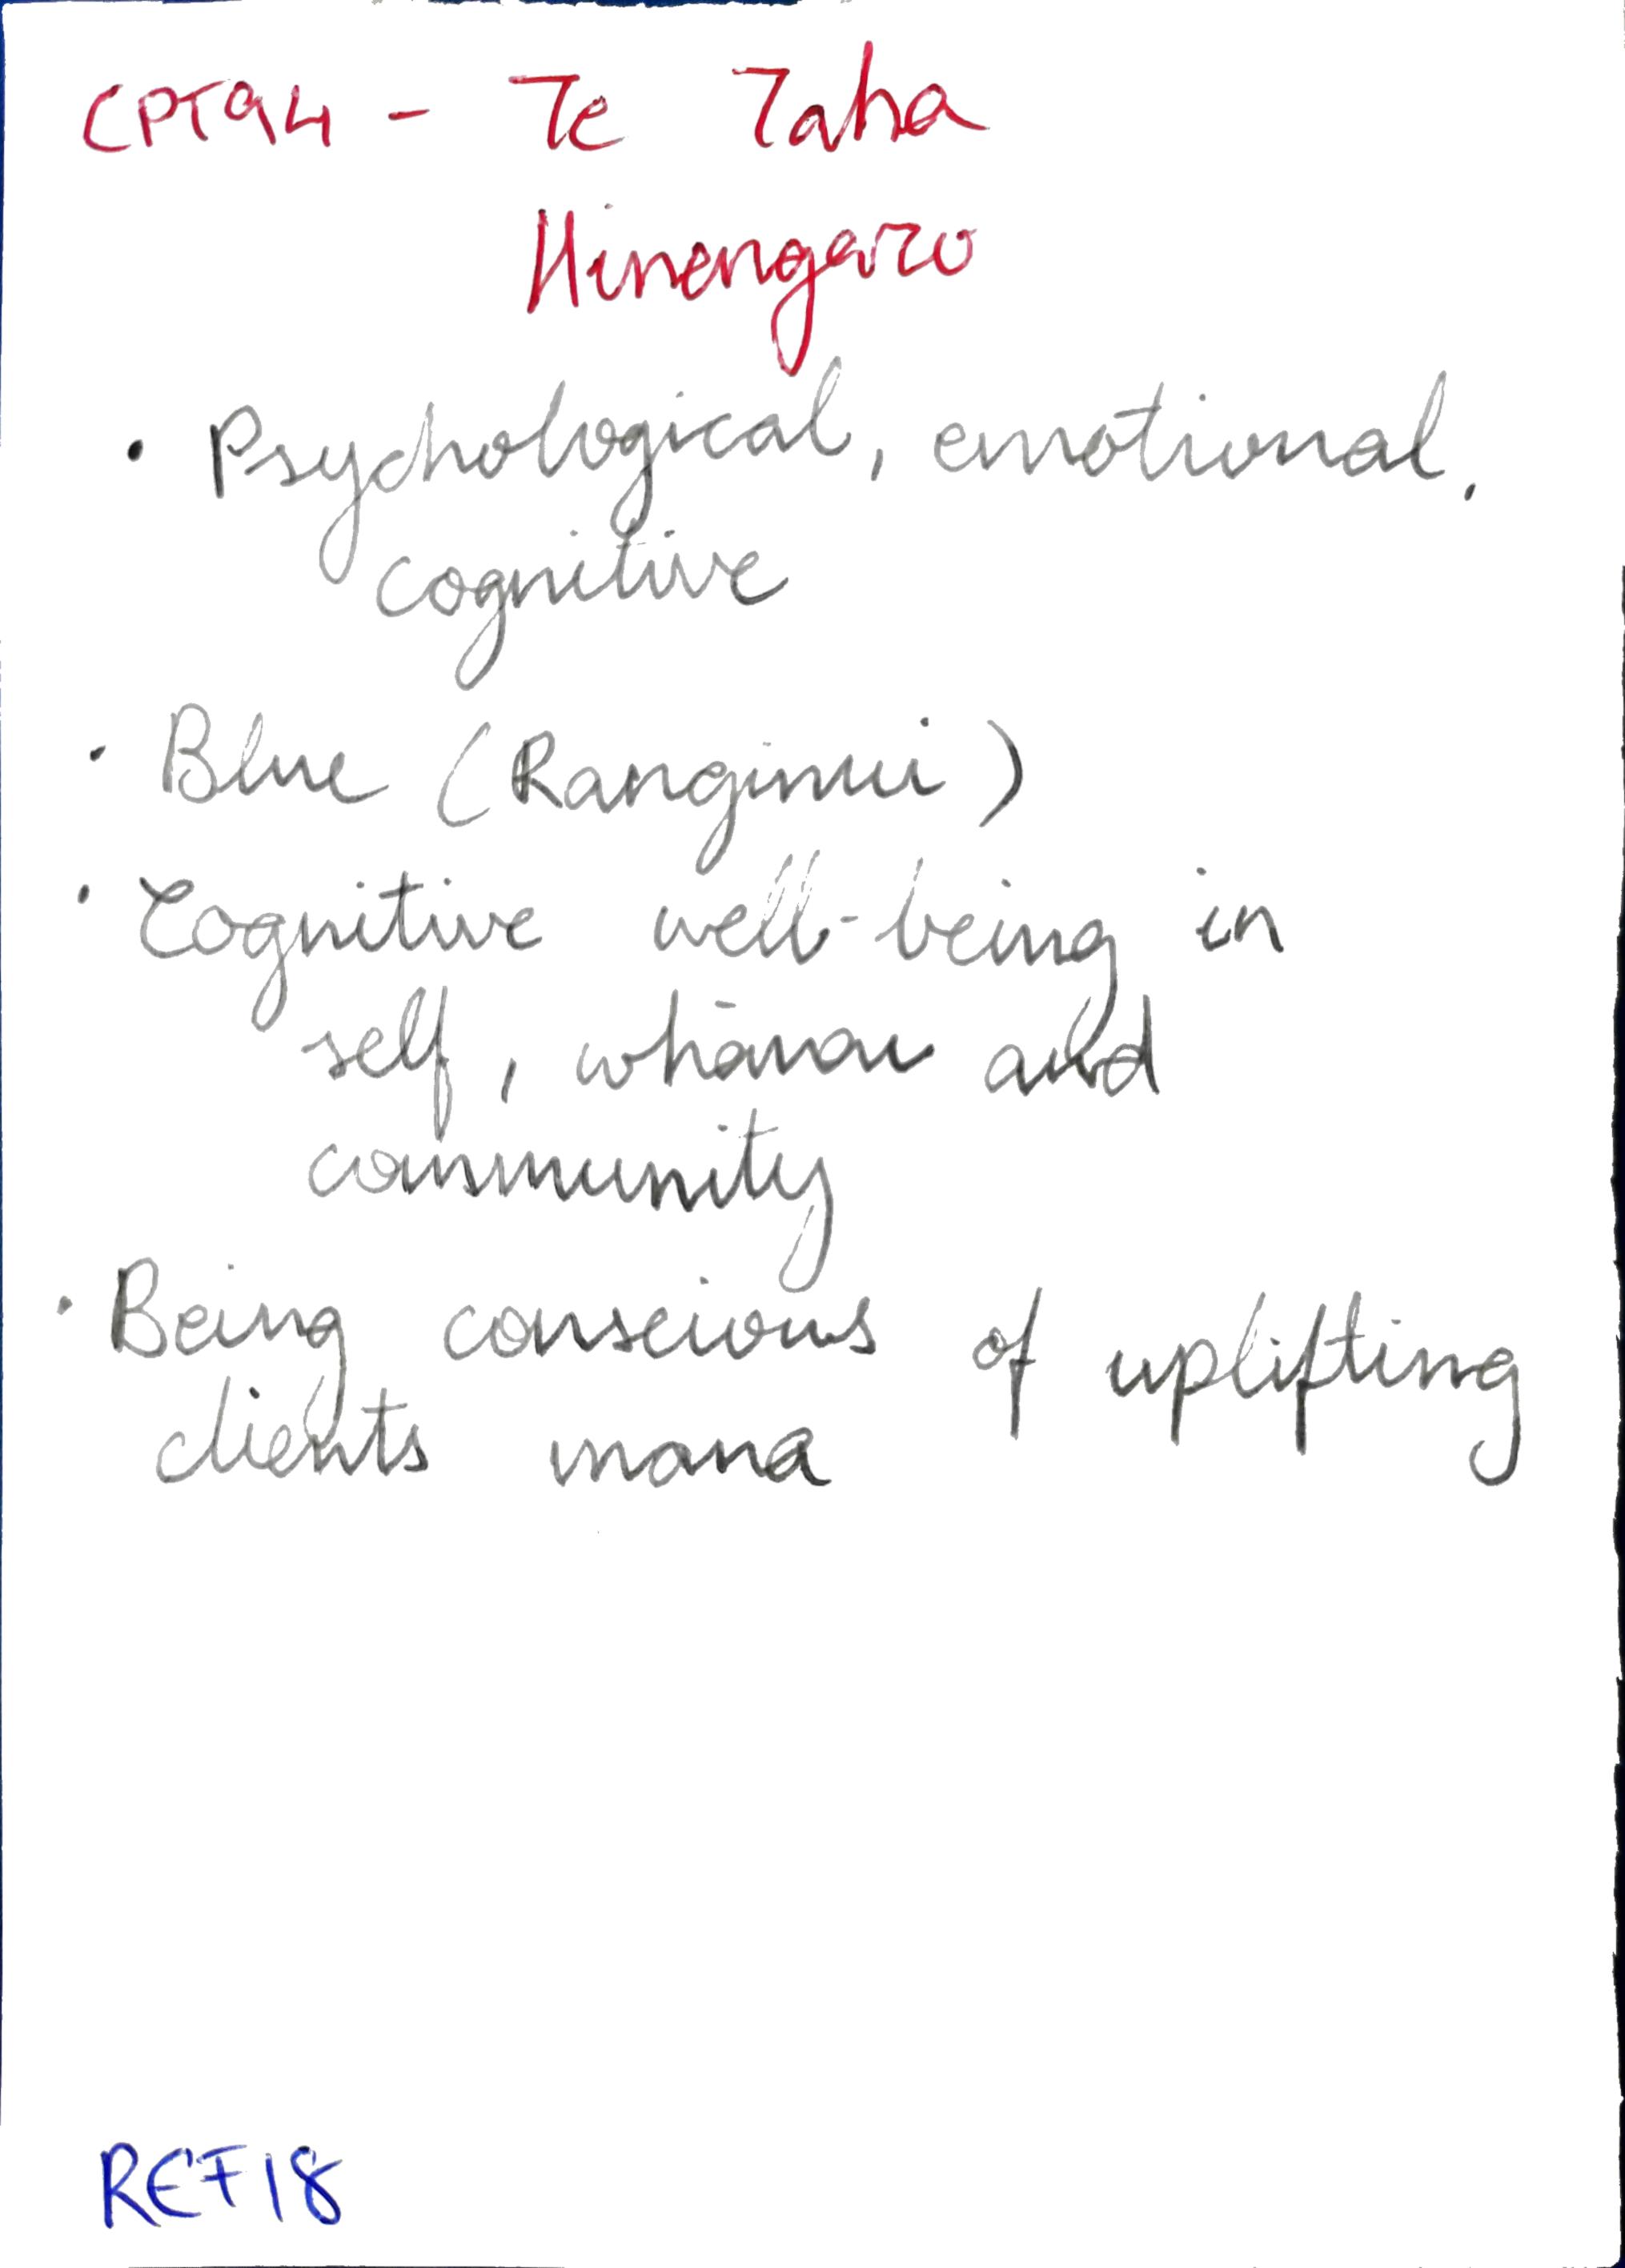 CPT94 - Te Taha
Hinengaro
• Psychological, emotional,
cognitive
• Blue (Rangimui)
• Cognitive well-being in
self, whānau and
community
• Being conscious of uplifting
clients mana
REF18